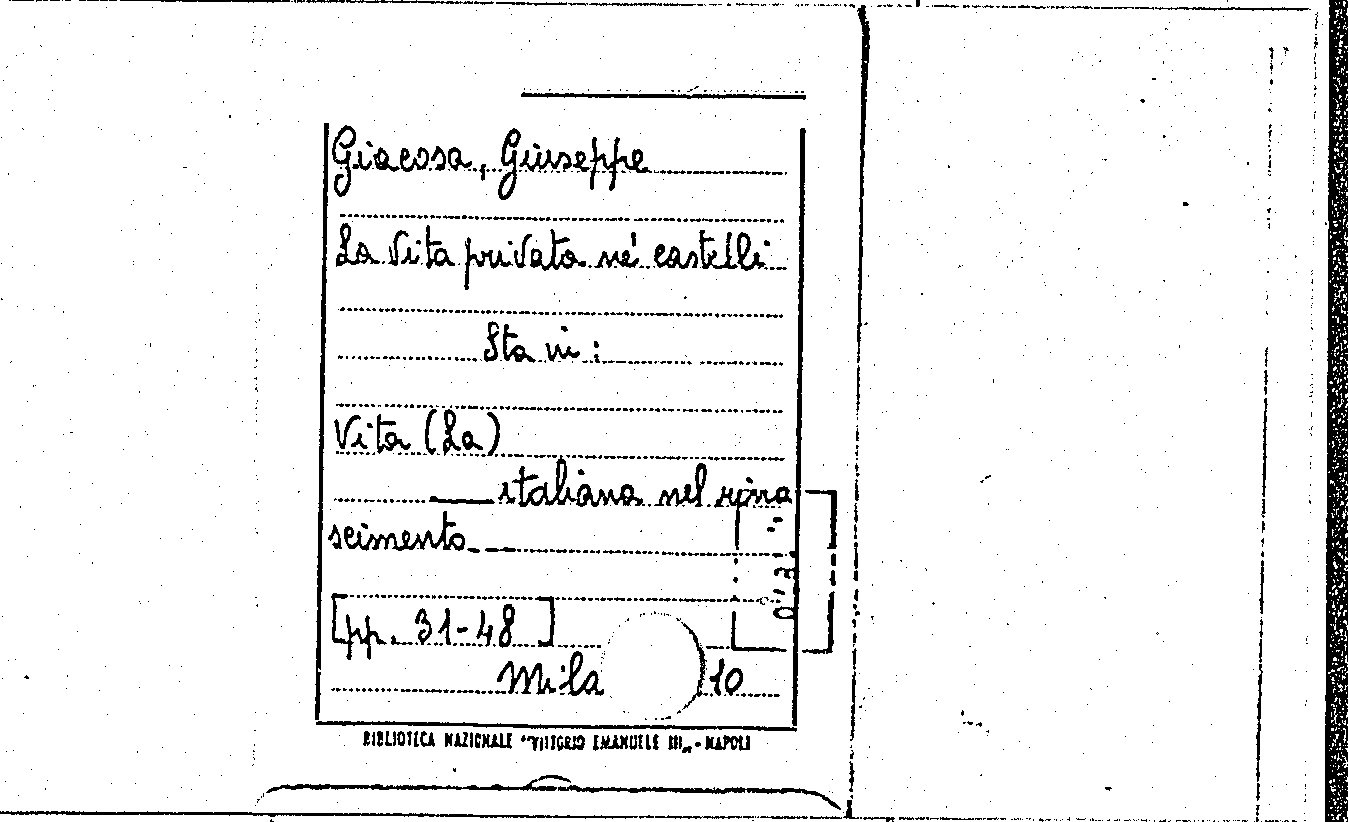 Giacosa, Giuseppe
La Vita privata né castelli
Sta in:
Vita (La)
___ italiana nel rina
scimento
[pp. 31-48]
Mila 10
BIBLIOTECA NAZIONALE "VITTORIO EMANUELE III" - NAPOLI